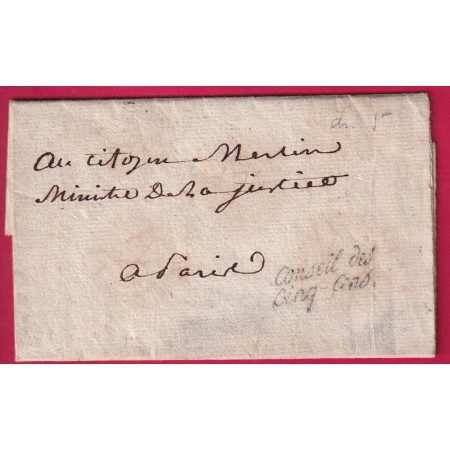 au citoyen Merlin
Ministre de la justice
a Paris
Conseil des
Cinq-Cens.